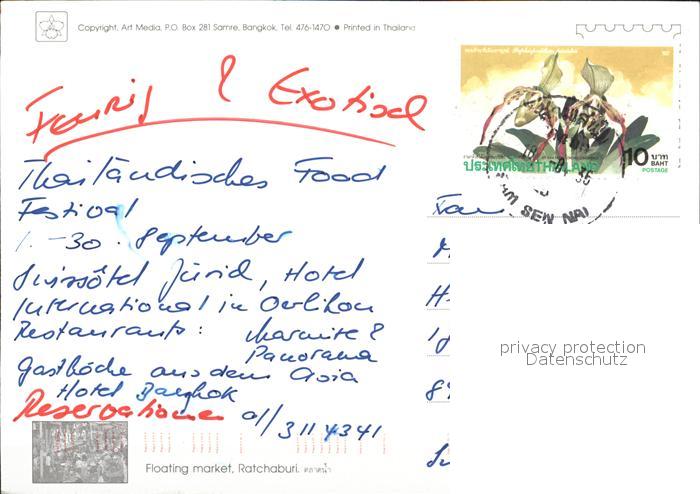 Copyright, Art Media, P.O. Box 281 Samre, Bangkok, Tel. 476-1470 ● Printed in Thailand
& Exotisch
Thailändisches Food
Festival
1.-30. September
Swissôtel Zürich, Hotel
International in Oerlikon
Restaurants: Marmite &
Panorama
Gastköche aus dem Asia
Hotel Bangkok
Reservationen 01/311 4341
Floating market, Ratchaburi. ตลาดน้ำ
ประเทศไทย THAILAND
10 บาท
BAHT
POSTAGE
SEN NAI
privacy protection
Datenschutz